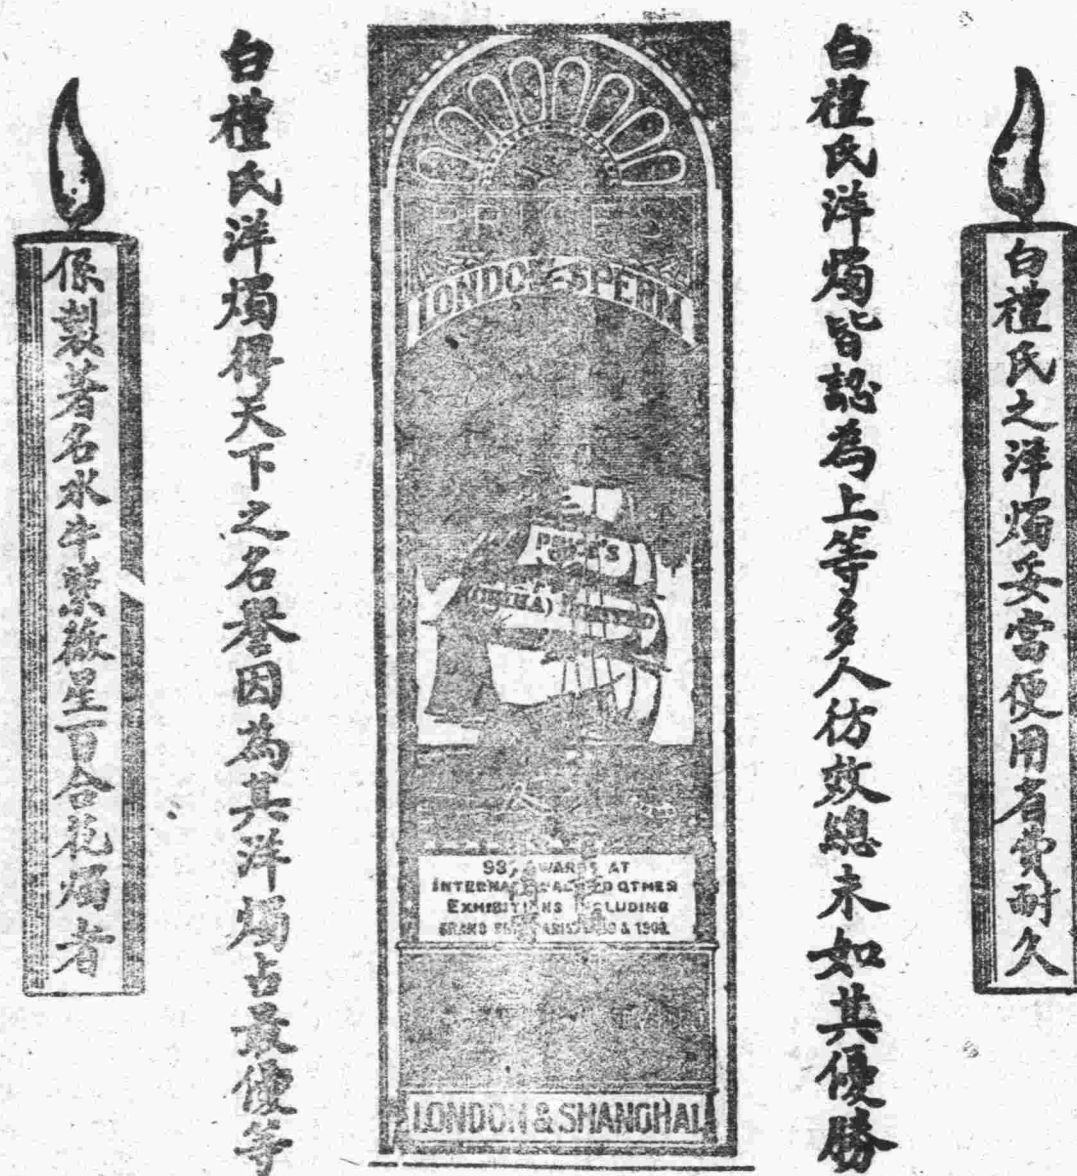 白禮氏之洋燭妥當便用省費耐久
白禮氏洋燭皆認為上等多人彷效總未如其優勝
PRICE'S
LONDON SPERM
PRICE'S
(CHINA) LIMITED
AWARDS AT
INTERNATIONAL AND OTHER
EXHIBITIONS INCLUDING
GRAND & 1900.
LONDON & SHANGHAI
白禮氏洋燭得天下之名譽因為其洋燭占最優等
係製著名水牛紫薇星百合花燭者